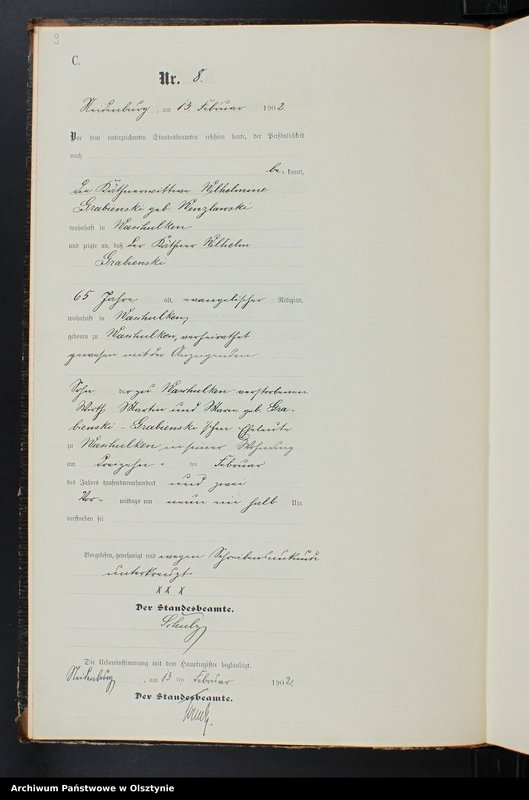 9
C.
Nr. 8.
Neidenburg, am 13. Februar 1902
Vor dem unterzeichneten Standesbeamten erschien heute, der Persönlichkeit
nach
be- kannt,
die Käthnerwittwe Wilhelmine
Grabienski geb. Wenzlawski
wohnhaft in Waschulken
und zeigte an, daß der Käthner Wilhelm
Grabienski
65 Jahre alt, evangelischer Religion,
wohnhaft in Waschulken,
geboren zu Waschulken, verheirathet
gewesen mit der Anzeigenden
Sohn der zu Waschulken verstorbenen
Wirth Martin und Marie geb. Gra-
bienski - Grabienski'schen Eheleute
zu Waschulken, in seiner Wohnung
am dreizehn- ten Februar
des Jahres tausendneunhundert und zwei
Vor- mittags um neun ein halb Uhr
verstorben sei
Vorgelesen, genehmigt und wegen Schreibensunkunde
unterkreuzt
x x x
Der Standesbeamte.
Schulz
Die Uebereinstimmung mit dem Hauptregister beglaubigt.
Neidenburg, am 13 ten Februar 1902
Der Standesbeamte.
Schulz.
Archiwum Państwowe w Olsztynie